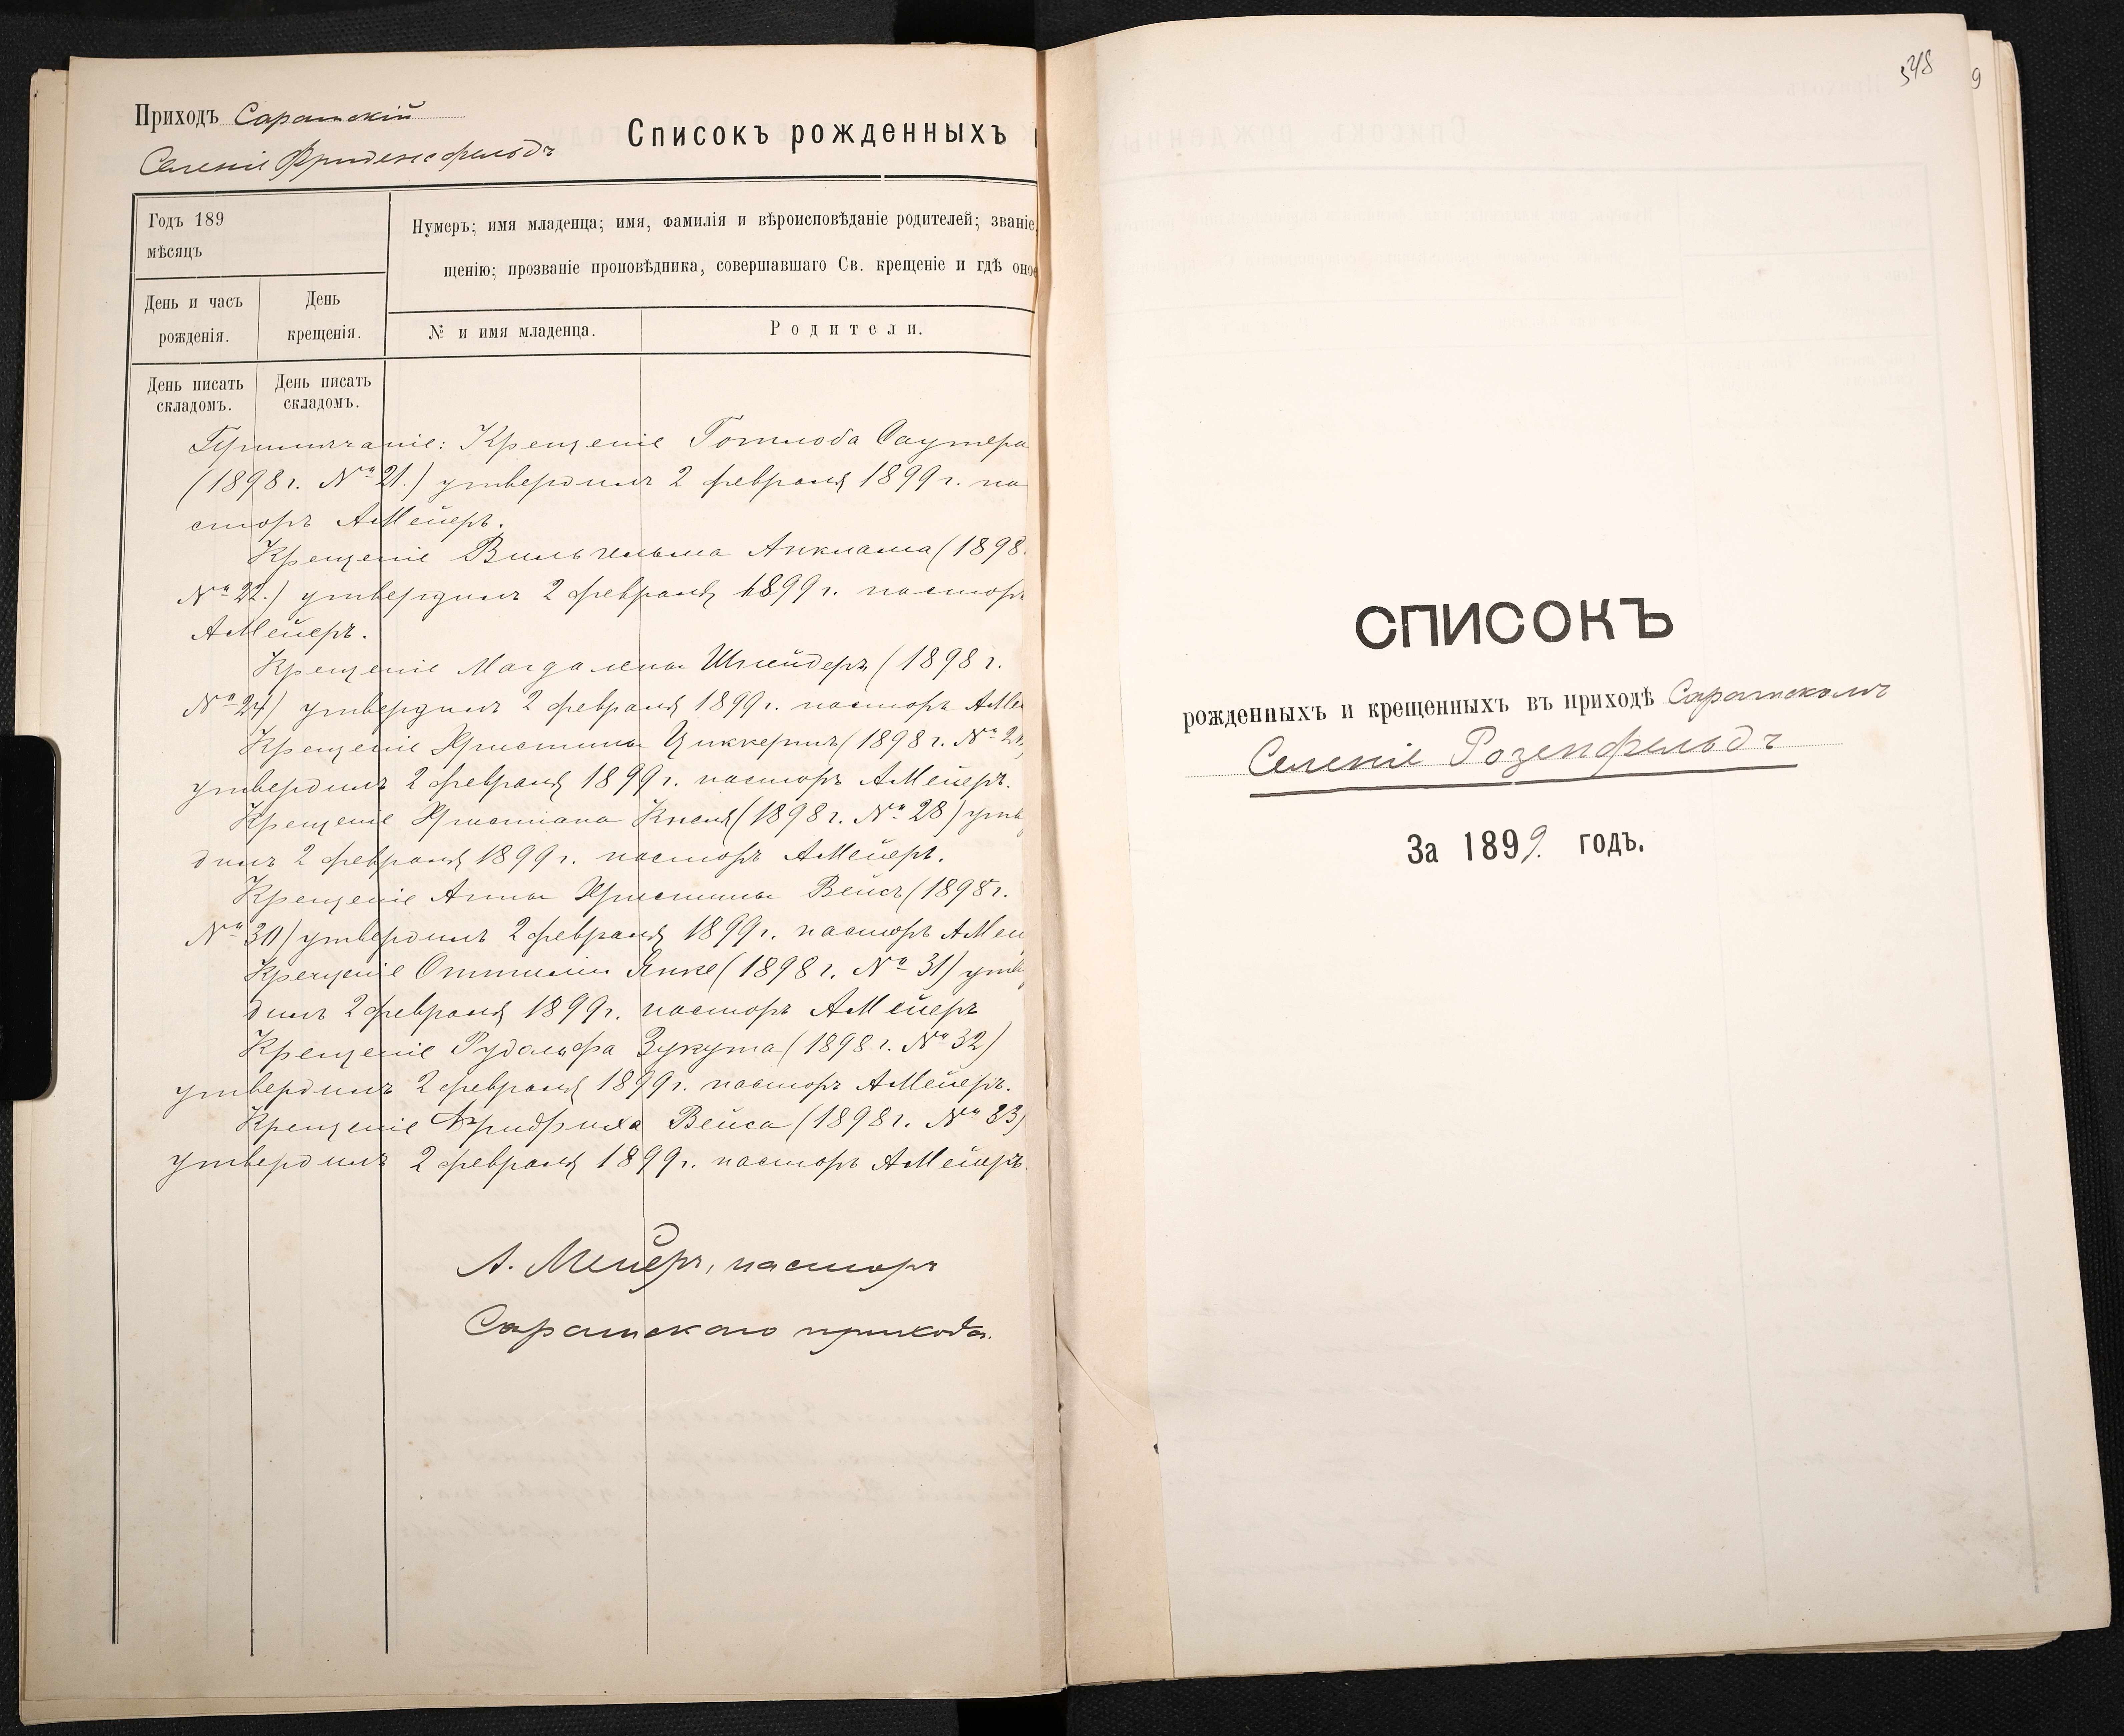 Приходъ Саратскій
Селеніе Фриденсфельдъ
Списокъ рожденныхъ
Годъ 189
мѣсяцъ
Нумеръ; имя младенца; имя, фамилія и вѣроисповѣданіе родителей; званіе,
щенію; прозваніе проповѣдника, совершавшаго Св. крещеніе и гдѣ оное
День и часъ рожденія.
День крещенія.
№ и имя младенца.
Родители.
День писать складомъ.
День писать складомъ.
Примѣчаніе: Крещеніе Готлоба Саутера
(1898 г. № 21.) утвердилъ 2 февраля 1899 г. па
сторъ АМейеръ.
Крещеніе Вильгельма Анклама (1898
№ 22.) утвердилъ 2 февраля 1899 г. пасторъ
АМейеръ.
Крещеніе Магдалены Шнейдеръ (1898 г.
№ 24) утвердилъ 2 февраля 1899 г. пасторъ АМей
Крещеніе Христины Циккертъ (1898 г. №
утвердилъ 2 февраля 1899 г. пасторъ АМейеръ.
Крещеніе Христіана Кнеля (1898 г. № 28) утв
дилъ 2 февраля 1899 г. пасторъ АМейеръ.
Крещеніе Анны Христины Вейсъ (1898 г.
№ 30) утвердилъ 2 февраля 1899 г. пасторъ АМей
Крещеніе Оттиліи Янке (1898 г. № 31) утв
дилъ 2 февраля 1899 г. пасторъ АМейеръ
Крещеніе Рудольфа Зукута (1898 г. № 32)
утвердилъ 2 февраля 1899 г. пасторъ АМейеръ.
Крещеніе Фридриха Вейса (1898 г. № 33)
утвердилъ 2 февраля 1899 г. пасторъ АМейеръ.
А. Мейеръ, пасторъ
Саратскаго прихода.
348
9
СПИСОКЪ
рожденныхъ и крещенныхъ въ приходѣ Саратскомъ
Селеніе Розенфельдъ
За 1899. годъ.